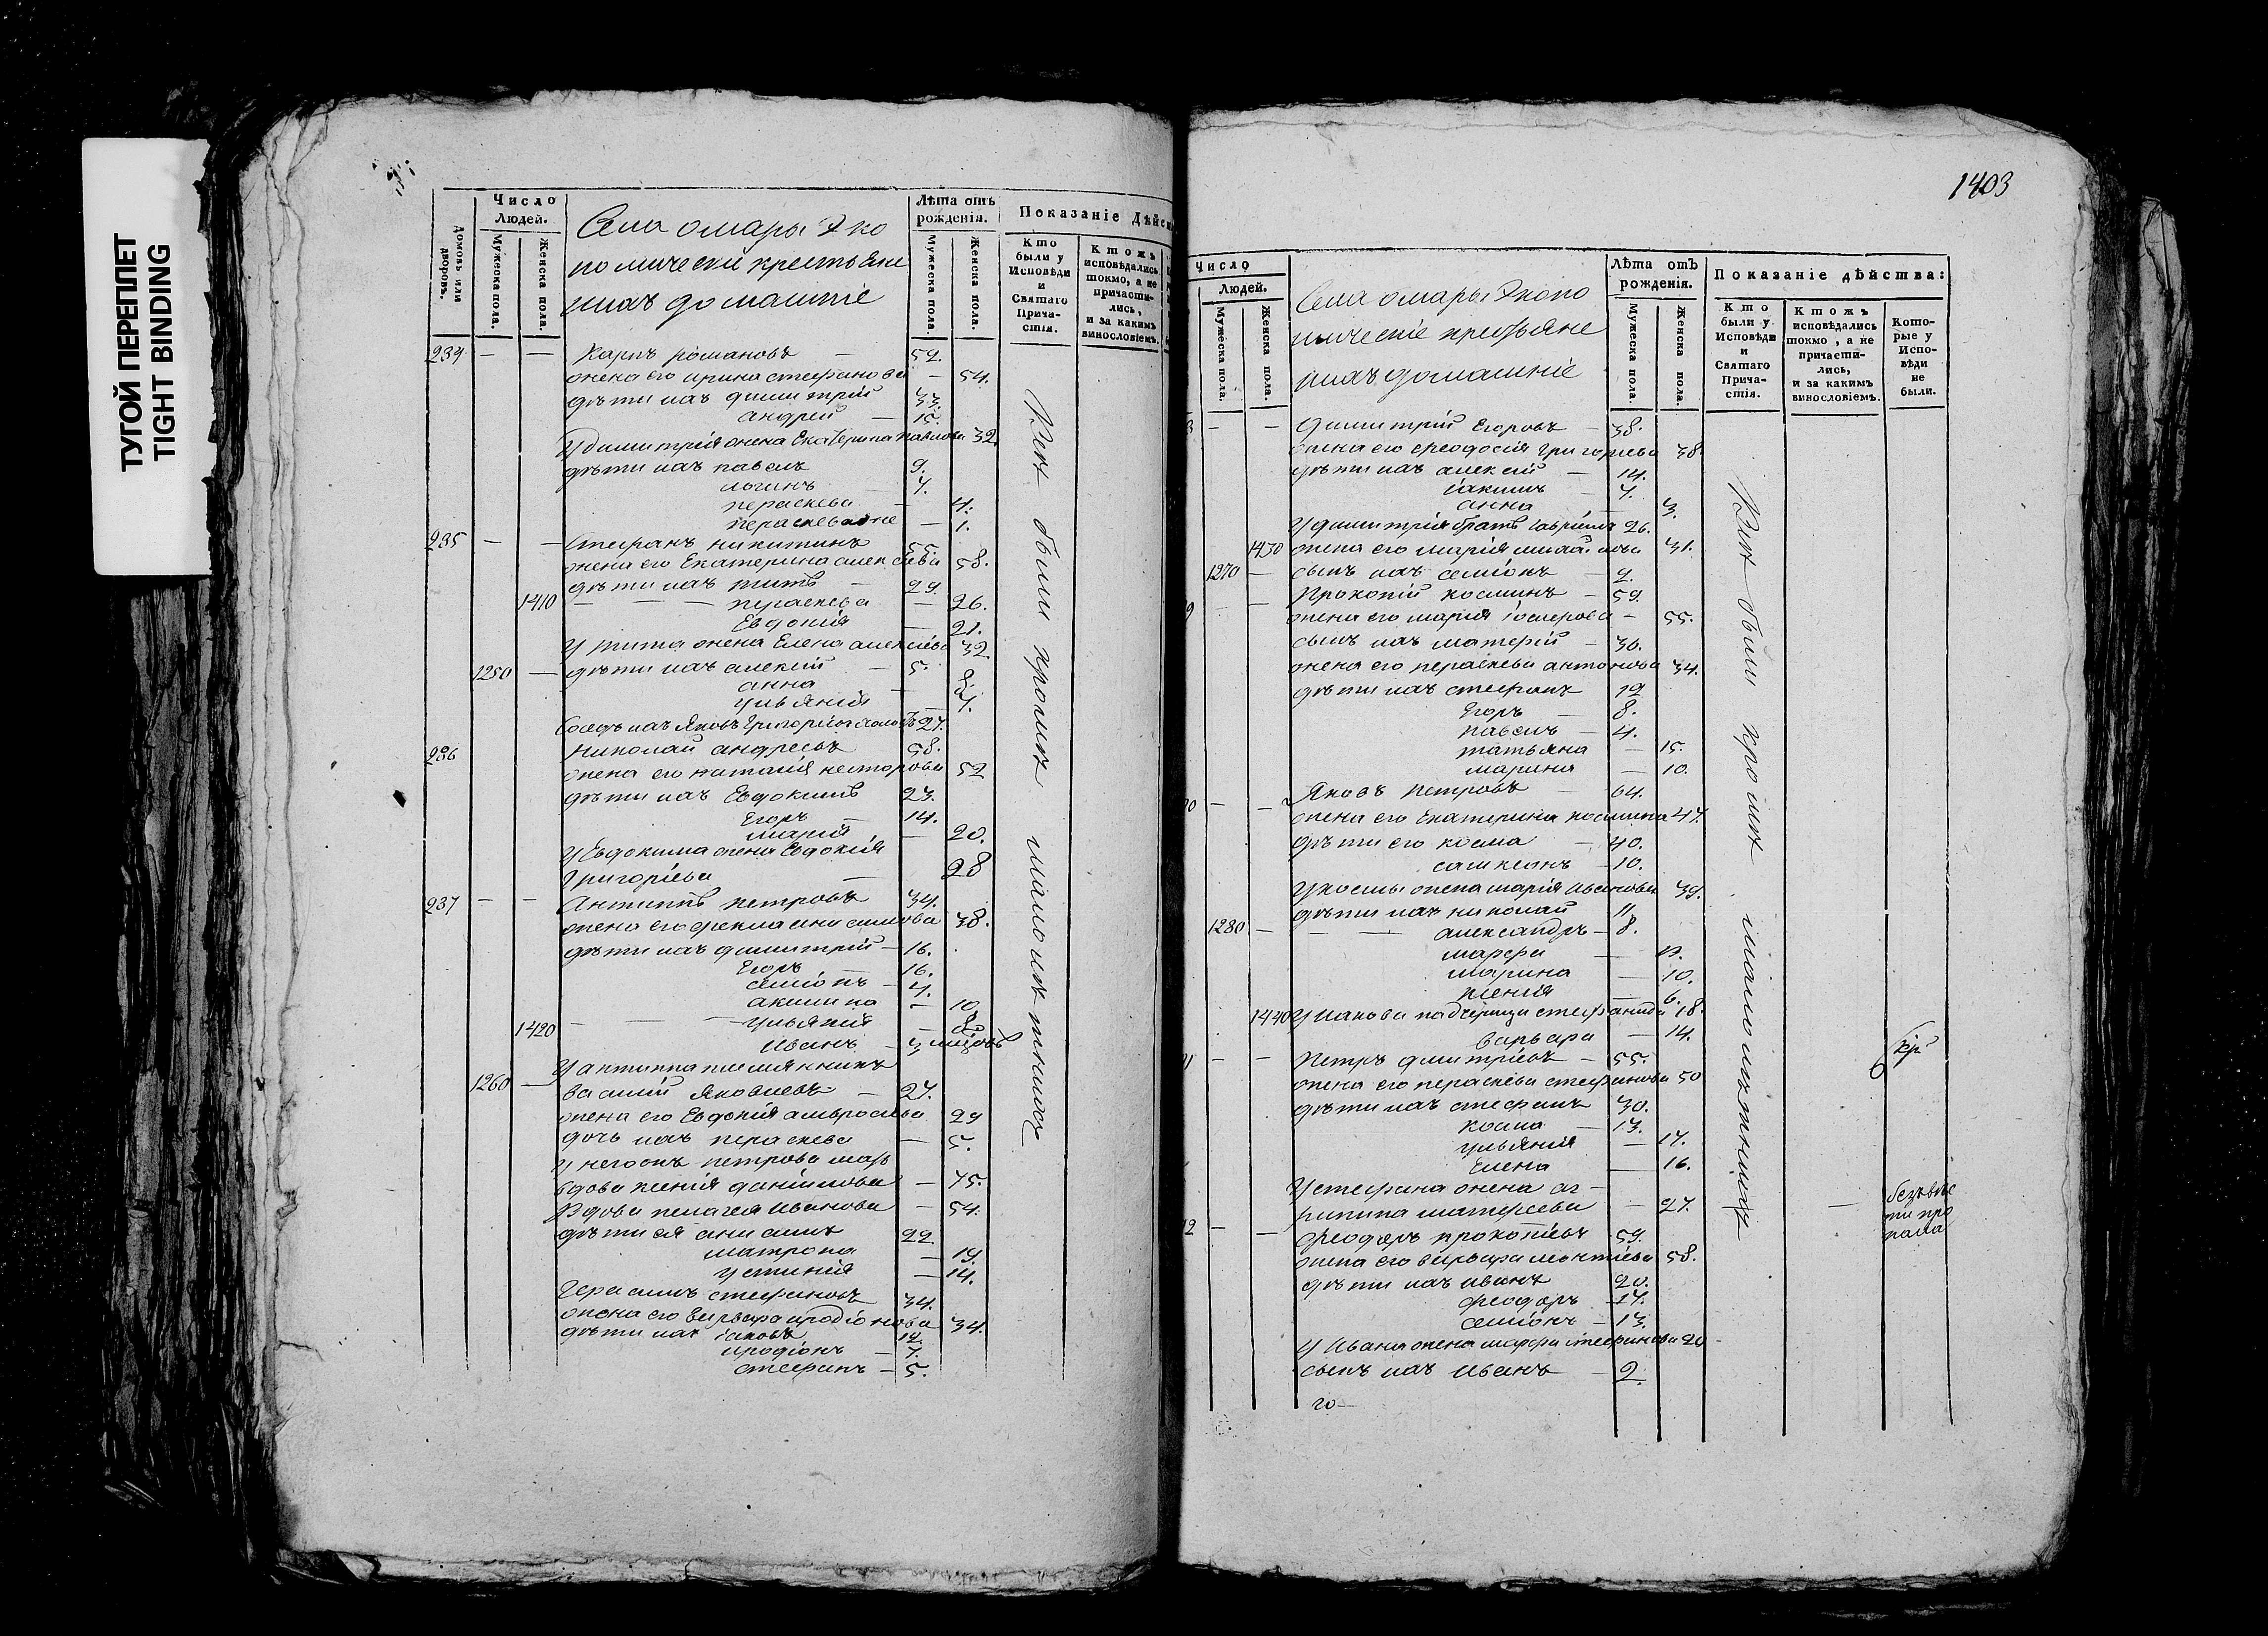 ТУГОЙ ПЕРЕПЛЕТ
TIGHT BINDING
Домовъ или дворовъ.
Число Людей.
Мужеска пола.
Женска пола.
Села омары Эко
номически крестьяне
ихъ домашніе
Лѣта отъ рожденія.
Мужеска пола.
Женска пола.
Показаніе Дѣйс
Кто были у Исповѣди и Святаго Прича-стія.
Ктожъ исповѣдались токмо, а не причасти-лись, и за какимъ винословіемъ.
234 — — Карпъ романовъ — 59.
жена его ирина стефанова — 54.
дѣти ихъ димитрій 33.
андрей — 15.
У димитрія жена Екатерина павлова 32.
дѣти ихъ павелъ 9.
логинъ — 7.
пераскева — 4.
пераскева же — 1.
235 — — Стефанъ никитинъ 55.
жена его Екатерина алексѣева 58.
дѣти ихъ титъ — 29.
1410 — — пераскева — 26.
Евдокія — 21.
У тита жена Елена алексіева 32.
1250 — дѣти ихъ алексій — 5.
анна — 8.
ульянія — 7.
236 николай андреевъ 58.
жена его наталія несторова 52
дѣти ихъ Евдокимъ 23.
Егоръ — 14.
марія — 20.
У Евдокима жена Евдокія
Григоріева — 28
237 — — Антипъ петровъ 34.
жена его фекла анисимова 38.
дѣти ихъ димитрій — 16.
Егоръ — 16.
семіонъ — 4.
акилина — 10
1420 — — ульянія —
Иванъ — 3 мцовъ
У антипа племянникъ
1260 — василій Яковлевъ — 27.
жена его Евдокія амвросіева 29
дочь ихъ пераскева — 5.
У него жъ петрова мать
вдова ксенія даніилова — 75.
Вдова пелагея Иванова — 54.
дѣти ея анисимъ 22.
матрона — 19.
устинія — 14.
Герасимъ стефановъ 34.
жена его варвара иродіонова 34.
дѣти ихъ іаковъ 12.
иродіонъ — 7.
стефанъ — 5.
Всѣ были кромѣ малолѣтныхъ
1403
Число Людей.
Мужеска пола.
Женска пола.
Села омары Эконо
мическіе крестьяне
ихъ домашніе
Лѣта отъ рожденія.
Мужеска пола.
Женска пола.
Показаніе дѣйства:
Кто были у Исповѣди и Святаго Прича-стія.
Ктожъ исповѣдались токмо, а не причасти-лись, и за какимъ винословіемъ.
Кото-рые у Испо-вѣди не были.
8 — — Димитрій Егоровъ — 38.
жена его феодосія григорьева 38.
дѣти ихъ алексій — 14.
іакимъ — 7.
анна — 3.
У димитрія братъ гавріилъ 26.
1430 жена его марія михайлова 31.
1270 — сынъ ихъ семіонъ — 2.
9 — — Прокопій косминъ — 59.
жена его марія — 55.
сынъ ихъ матфій — 36.
жена его пераскева антонова 34.
дѣти ихъ стефанъ 12
Егоръ — 8.
павелъ — 4.
татьяна — 15.
марина — 10.
0 — — Яковъ петровъ — 64.
жена его Екатерина космина 47.
дѣти его косма — 40.
симеонъ — 10.
У космы жена марія Иванова 39.
дѣти ихъ николай 11.
1280 — — александръ — 8.
марфа —
марина — 10.
ксенія — 6.
1440 У іакова падчерицы стефанида 18.
варвара — 14.
1 — — Петръ димитріевъ — 55.
жена его пераскева стефанова 50
дѣти ихъ стефанъ 30.
косма — 13.
ульянія — 17.
Елена — 16.
У стефана жена аг-
рипина матфеева — 27. —
безъвѣс
ти про
пала
2 — — Феодоръ прокопіевъ 59.
жена его варвара леонтіева 58.
дѣти ихъ иванъ 20.
феодоръ — 17.
семіонъ — 13.
У Ивана жена марфа стефанова 20
сынъ ихъ иванъ — 2.
го —
Всѣ были кромѣ малолѣтныхъ